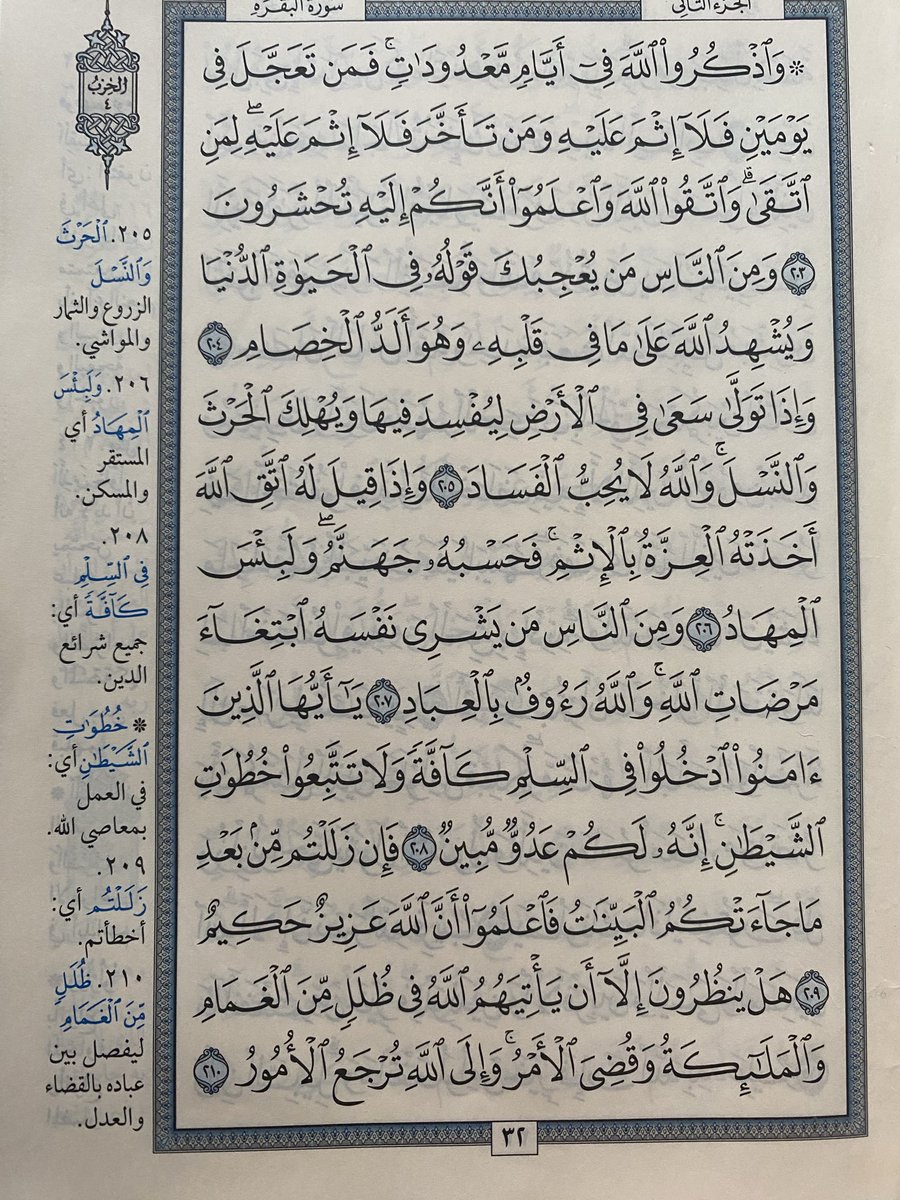 الجزء الثاني
سورة البقرة
الحزب
٤
۞ وَٱذْكُرُوا۟ ٱللَّهَ فِىٓ أَيَّامٍ مَّعْدُودَٰتٍ ۚ فَمَن تَعَجَّلَ فِى
يَوْمَيْنِ فَلَآ إِثْمَ عَلَيْهِ وَمَن تَأَخَّرَ فَلَآ إِثْمَ عَلَيْهِ ۖ لِمَنِ
ٱتَّقَىٰ ۗ وَٱتَّقُوا۟ ٱللَّهَ وَٱعْلَمُوٓا۟ أَنَّكُمْ إِلَيْهِ تُحْشَرُونَ
٢٠٣ وَمِنَ ٱلنَّاسِ مَن يُعْجِبُكَ قَوْلُهُۥ فِى ٱلْحَيَوٰةِ ٱلدُّنْيَا
وَيُشْهِدُ ٱللَّهَ عَلَىٰ مَا فِى قَلْبِهِۦ وَهُوَ أَلَدُّ ٱلْخِصَامِ ٢٠٤
وَإِذَا تَوَلَّىٰ سَعَىٰ فِى ٱلْأَرْضِ لِيُفْسِدَ فِيهَا وَيُهْلِكَ ٱلْحَرْثَ
وَٱلنَّسْلَ ۗ وَٱللَّهُ لَا يُحِبُّ ٱلْفَسَادَ ٢٠٥ وَإِذَا قِيلَ لَهُ ٱتَّقِ ٱللَّهَ
أَخَذَتْهُ ٱلْعِزَّةُ بِٱلْإِثْمِ ۚ فَحَسْبُهُۥ جَهَنَّمُ ۖ وَلَبِئْسَ
ٱلْمِهَادُ ٢٠٦ وَمِنَ ٱلنَّاسِ مَن يَشْرِى نَفْسَهُ ٱبْتِغَآءَ
مَرْضَاتِ ٱللَّهِ ۗ وَٱللَّهُ رَءُوفٌۢ بِٱلْعِبَادِ ٢٠٧ يَٰٓأَيُّهَا ٱلَّذِينَ
ءَامَنُوا۟ ٱدْخُلُوا۟ فِى ٱلسِّلْمِ كَآفَّةً وَلَا تَتَّبِعُوا۟ خُطُوَٰتِ
ٱلشَّيْطَٰنِ ۚ إِنَّهُۥ لَكُمْ عَدُوٌّ مُّبِينٌ ٢٠٨ فَإِن زَلَلْتُم مِّنۢ بَعْدِ
مَا جَآءَتْكُمُ ٱلْبَيِّنَٰتُ فَٱعْلَمُوٓا۟ أَنَّ ٱللَّهَ عَزِيزٌ حَكِيمٌ
٢٠٩ هَلْ يَنظُرُونَ إِلَّآ أَن يَأْتِيَهُمُ ٱللَّهُ فِى ظُلَلٍ مِّنَ ٱلْغَمَامِ
وَٱلْمَلَٰٓئِكَةُ وَقُضِىَ ٱلْأَمْرُ ۚ وَإِلَى ٱللَّهِ تُرْجَعُ ٱلْأُمُورُ ٢١٠
٢٠٥. ٱلْحَرْثَ
وَٱلنَّسْلَ
الزروع والثمار
والمواشي.
٢٠٦. وَلَبِئْسَ
ٱلْمِهَادُ أي
المستقر
والمسكن.
٢٠٨.
فِي ٱلسِّلْمِ
كَآفَّةً أي:
جميع شرائع
الدين.
* خُطُوَٰتِ
ٱلشَّيْطَٰنِ أي:
في العمل
بمعاصي الله.
٢٠٩.
زَلَلْتُم أي:
أخطأتم.
٢١٠. ظُلَلٍ
مِّنَ ٱلْغَمَامِ
ليفصل بين
عباده بالقضاء
والعدل.
٣٢